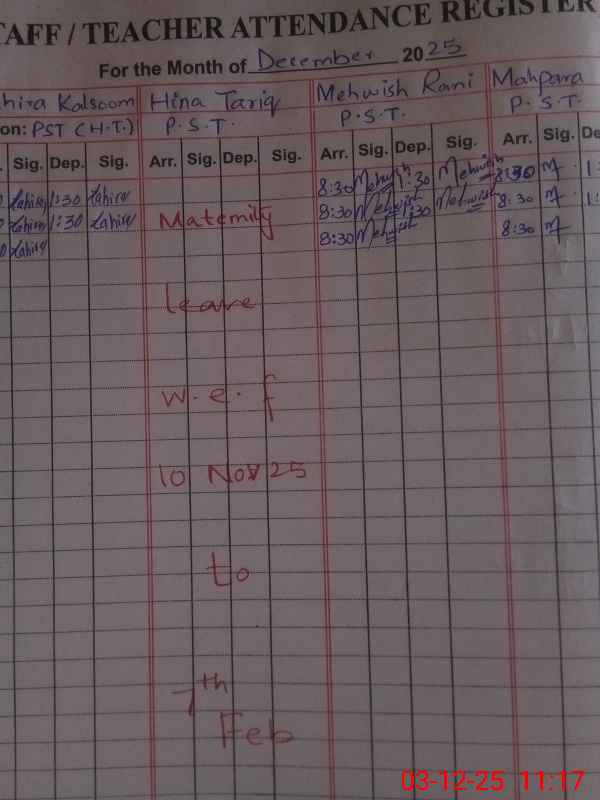 TAFF / TEACHER ATTENDANCE REGISTER
For the Month of December 2025
hira Kalsoom Hina Tariq Mehwish Rani Mahpara
on: PST (H.T.) P.S.T. P.S.T. P.S.T.
. Sig. Dep. Sig. Arr. Sig. Dep. Sig. Arr. Sig. Dep. Sig. Arr. Sig. De
Tahira 1:30 Tahira 8:30 Mehwish 1:30 Mehwish 8:30 M 1:
Tahira 1:30 Tahira Maternity 8:30 Mehwish 1:30 Mehwish 8:30 M 1:
Tahira 8:30 Mehwish 8:30 M
leave
w.e.f
10 Nov 25
to
7th
Feb
03-12-25 11:17